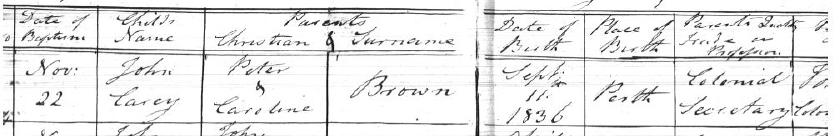 Date of Baptism
Child's Name
Parents
Christian & Surname
Date of Birth
Place of Birth
Parents Quality Trade or Profession
Nov: 22
John Carey
Peter & Caroline
Brown
Sept. 11. 1836
Perth
Colonial Secretary